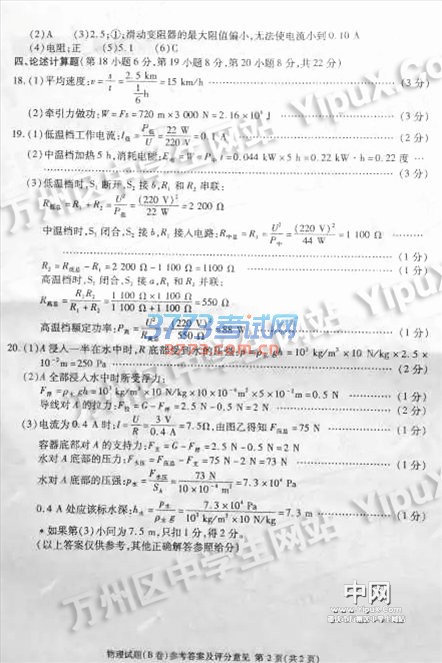 (2)A (3)2.5;①;滑动变阻器的最大阻值偏小,无法使电流小到0.10 A
(4)电阻;正 (5)5.1 (6)C
四、论述计算题(第18小题6分,第19小题8分,第20小题8分,共22分)
18.(1)平均速度:v=s/t=2.5 km/(1/6 h)=15 km/h (3分)
(2)牵引力做功:W=Fs=720 m×3 000 N=2.16×10⁶ J (3分)
19.(1)低温档工作电流:I低=P低/U=22 W/220 V=0.1 A (2分)
(2)中温档加热5 h,消耗电能:E中=W=P中t=0.044 kW×5 h=0.22 kW·h=0.22 度
(3分)
(3)低温档时,S₁断开,S₂接b,R₁和R₂串联:
R低总=R₁+R₂=U²/P低=(220 V)²/22 W=2 200 Ω
中温档时,S₁闭合,S₂接b,R₁接入电路:R中总=R₁=U²/P中=(220 V)²/44 W=1 100 Ω
(1分)
R₂=R低总-R₁=2 200 Ω-1 100 Ω=1100 Ω (1分)
高温档时,S₁闭合,S₂接a,R₁和R₂并联:
R高总=R₁R₂/(R₁+R₂)=1 100 Ω×1 100 Ω/(1 100 Ω+1 100 Ω)=550 Ω
高温档额定功率:P高=U²/R高总=(220 V)²/550 Ω=88 W (1分)
20.(1)A浸入一半在水中时,R底部受到水的压强:p=ρ水gh=10³ kg/m³×10 N/kg×2.5×
10⁻²m=250 Pa (2分)
(2)A全部浸入水中时所受浮力:
F浮=ρ水gh=10³ kg/m³×10 N/kg×10×10⁻⁴m²×5×10⁻²m=0.5 N
导线对A的拉力:F拉=G-F浮=2.5 N-0.5 N=2 N (2分)
(3)电流为0.4 A时:I=U/R=3 V/0.4 A=7.5Ω,由图乙得知F压总=75 N
容器底部对A的支持力:F支=G-F浮=2.5 N-0.5 N=2 N
水对A底部的压力:F水压=F压总-F支=75 N-2 N=73 N (1分)
水对A底部的压强:p水=F水压/S=73 N/10×10⁻⁴ m²=7.3×10⁴ Pa
0.4 A处应该标水深:h水=p水/ρ水g=7.3×10⁴ Pa/10³ kg/m³×10 N/kg=7.3 m (1分)
*如果第(3)小问为7.5 m,只扣1分,得2分。
(以上答案仅供参考,其他正确解答参照给分)
物理试题(B卷)参考答案及评分意见 第2页(共2页)
万州区中学生网站 YipuX.Com
3773考试网
中网